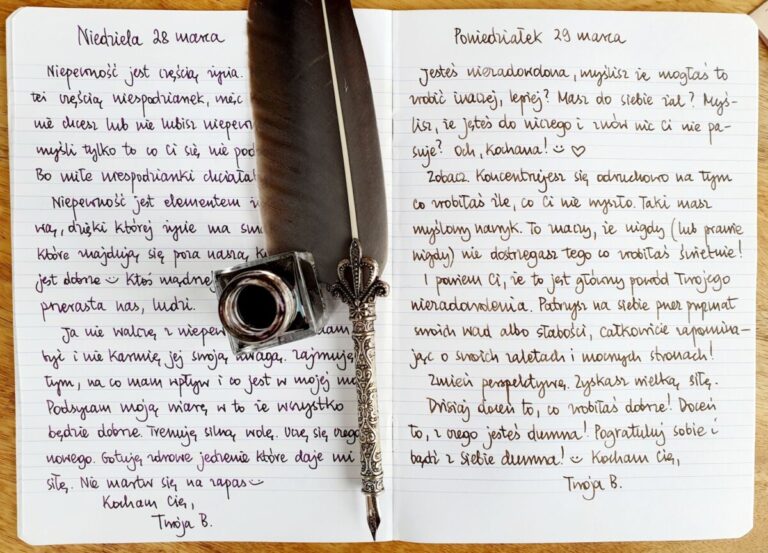 Niedziela 28 marca
Niepewność jest częścią życia.
tej częścią niespodzianek, więc
nie chcesz lub nie lubisz niepewn
myśli tylko to co Ci się nie pod
Bo miłe niespodzianki chciała
Niepewność jest elementem
wag, dzięki której życie ma
które znajdują się poza naszą
jest dobrze Ktoś mądrze
przerasta nas, ludzi.
Ja nie walczę z niepew
być i nie karmię jej swoją uwagą. Zajmuję
tym, na co mam wpływ i co jest w mojej
Podsycam moją wiarę w to że wszystko
będzie dobrze. Trenuję silną wolę. Uczę się czego
nowego. Gotuję zdrowe jedzenie które daje mi
siłę. Nie martw się na zapas
Kocham Cię,
Twoja B.
Poniedziałek 29 marca
Jesteś niezadowolona, myślisz że mogłaś to
zrobić inaczej, lepiej? Masz do siebie żal? Myś-
lisz, że jesteś do niczego i znów nic Ci nie pa-
suje? Och, kochana! ☺ ♡
Zobacz. Koncentrujesz się odruchowo na tym
co zrobiłaś źle, co Ci nie wyszło. Taki masz
myślowy nawyk. To znaczy, że nigdy (lub prawie
nigdy) nie dostrzegasz tego co zrobiłaś świetnie!
I powiem Ci, że to jest główny powód Twojego
niezadowolenia. Patrzysz na siebie przez pryzmat
swoich wad albo słabości, całkowicie zapomina-
jąc o swoich zaletach i mocnych stronach!
Zmień perspektywę. Zyskasz wielką siłę.
Dzisiaj doceń to, co zrobiłaś dobrze! Doceń
to, z czego jesteś dumna! Pogratuluj sobie i
bądź z siebie dumna! ☺ Kocham Cię,
Twoja B.